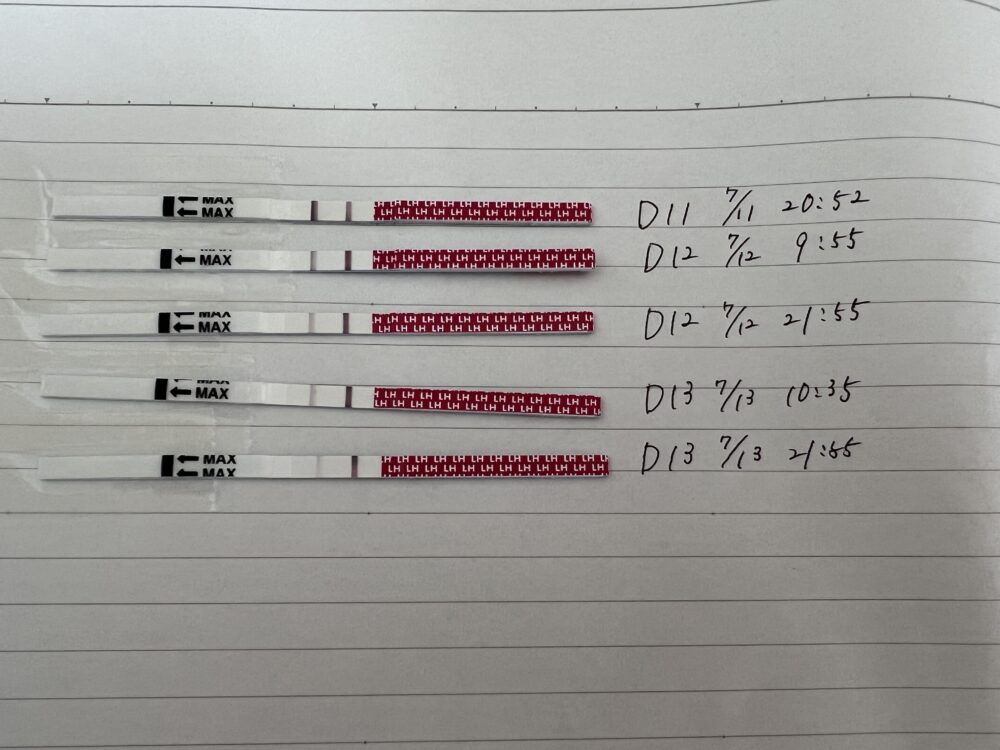 MAX
MAX LH LH LH LH LH LH LH LH LH LH LH D11 7/11 20:52
MAX LH LH LH LH LH LH LH LH LH LH LH D12 7/12 9:55
MAX
MAX LH LH LH LH LH LH LH LH LH LH LH D12 7/12 21:55
MAX
MAX LH LH LH LH LH LH LH LH LH LH LH D13 7/13 10:35
MAX
MAX LH LH LH LH LH LH LH LH LH LH LH D13 7/13 21:55